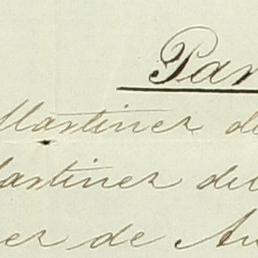 Par
Martinez de
artinez del
ez de Au